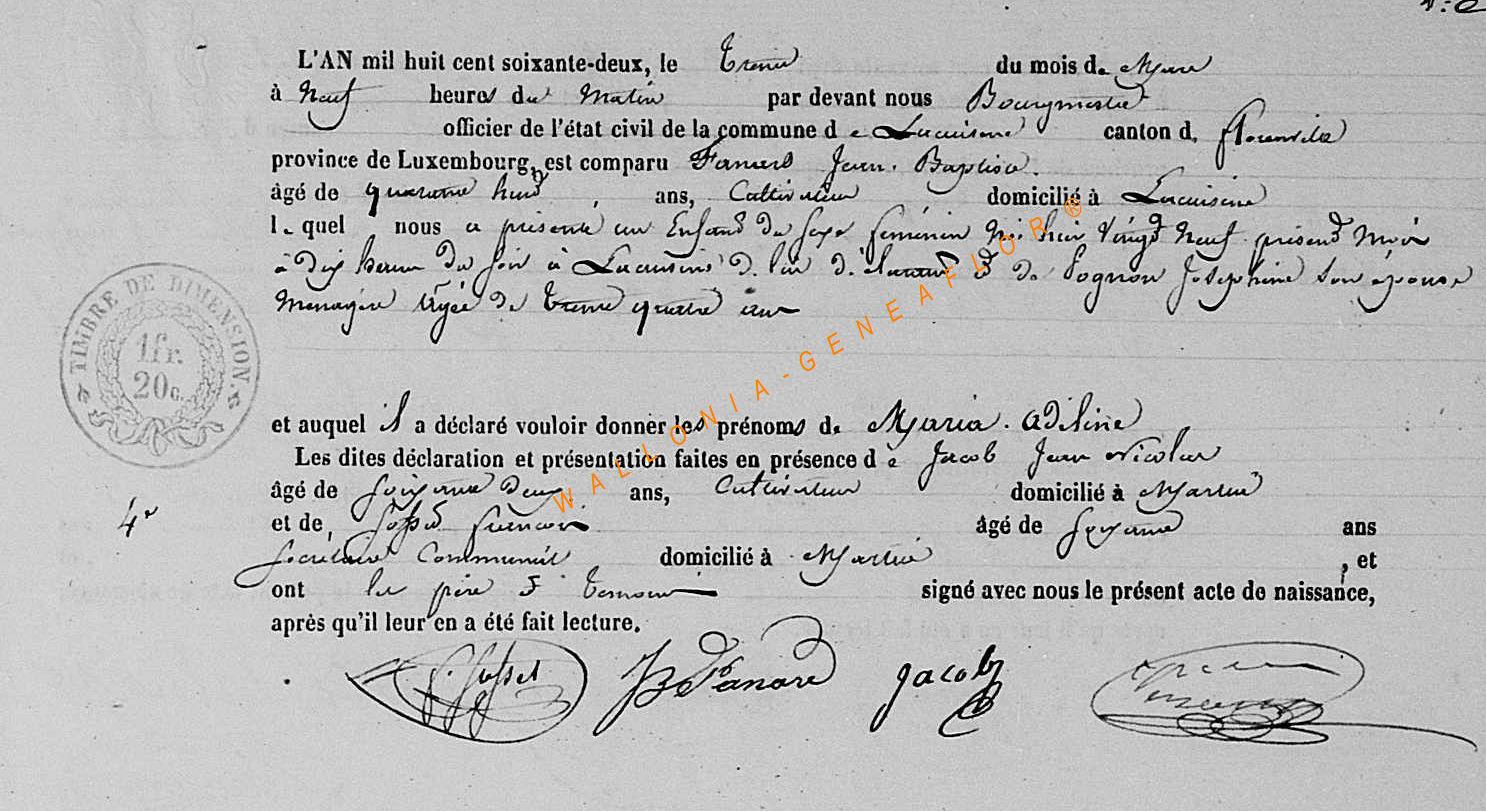 L'AN mil huit cent soixante-deux, le Trente du mois de Mars
à Neuf heures du Matin par devant nous Bourgmestre
officier de l'état civil de la commune de Lacuisine canton d. florenville
province de Luxembourg, est comparu Jean Baptiste.
âgé de quarante huit, ans, Cultivateur domicilié à Lacuisine
lequel nous a présenté un Enfant du sexe féminin Né hier Vingt Neuf présent Mois
à dix heures du soir à Lacuisine de lui déclarant et de Pognon Josephine son épouse
Menagère âgée de trente quatre ans
TIMBRE DE DIMENSION.
1fr.
20c.
et auquel il a déclaré vouloir donner les prénoms de Maria. adeline
Les dites déclaration et présentation faites en présence de Jacob Jean Nicolas
âgé de soixante deux ans, Cultivateur domicilié à Martué
4e
et de, François âgé de soixante ans
secrétaire Communal domicilié à Martué, et
ont le père et témoins signé avec nous le présent acte de naissance,
après qu'il leur en a été fait lecture.
Jacob
WALLONIA-GENEAFLOR ®